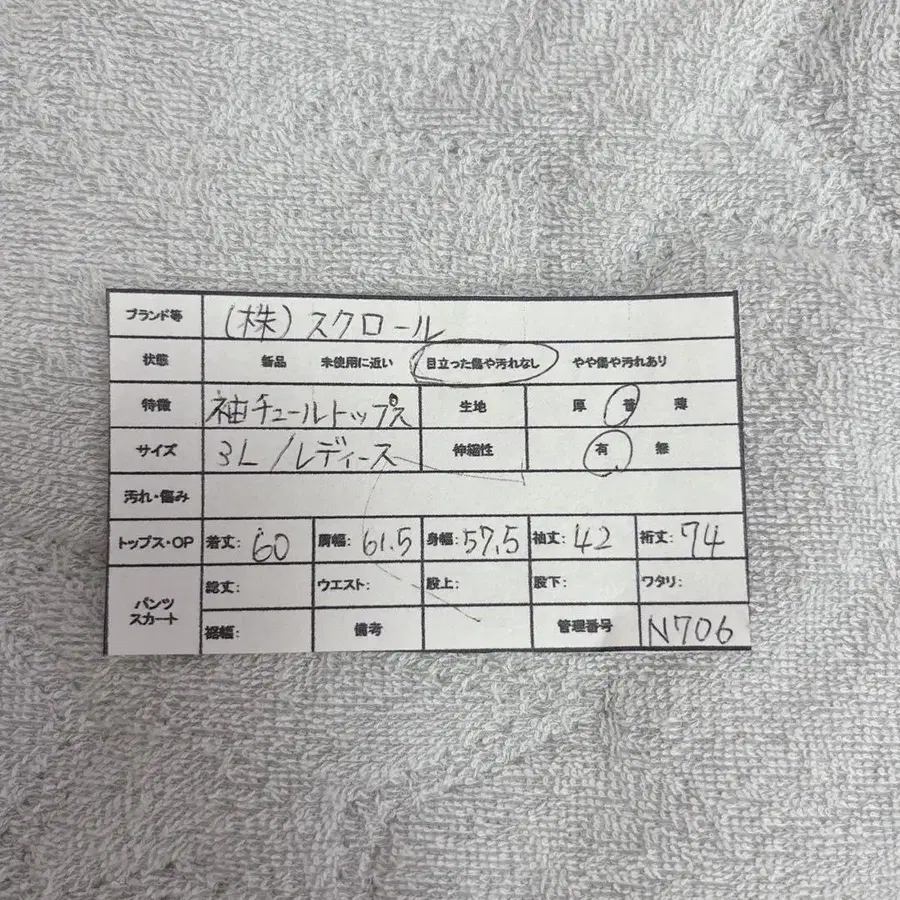 ブランド等 (株)スクロール
状態 新品 未使用に近い 目立った傷や汚れなし やや傷や汚れあり
特徴 袖チュールトップス 生地 厚 普 薄
サイズ 3L/レディース 伸縮性 有 無
汚れ・傷み
トップス・OP 着丈: 60 肩幅: 61.5 身幅: 57.5 袖丈: 42 裄丈: 74
パンツ スカート 総丈: ウエスト: 股上: 股下: ワタリ:
裾幅: 備考 管理番号 N706